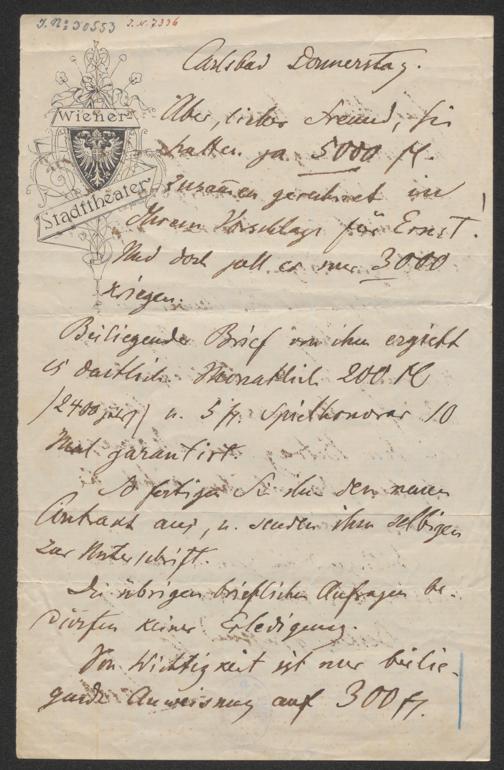 J. N: 30553 J. N. 7396
Wiener
Stadttheater
Carlsbad Donnerstag.
Aber, lieber Freund, Sie
hatten ja 5000 fl.
zusam̄en gerechnet in
Ihrem Vorschlage für Ernst!
Und doch soll er nur 3000
kriegen.
Beiliegender Brief von ihm ergiebt
es deutlich. Monatlich 200 fl
u. 5 fl. Spielhonorar 10
Mal garantirt
So fertigen Sie ihm den neuen
Contrakt aus, u. senden ihm selbigen
zur Unterschrift.
Die übrigen brieflichen Anfragen be-
dürfen keiner Erledigung.
Von Wichtigkeit ist nur beilie-
gende Anweisung auf 300 fl.